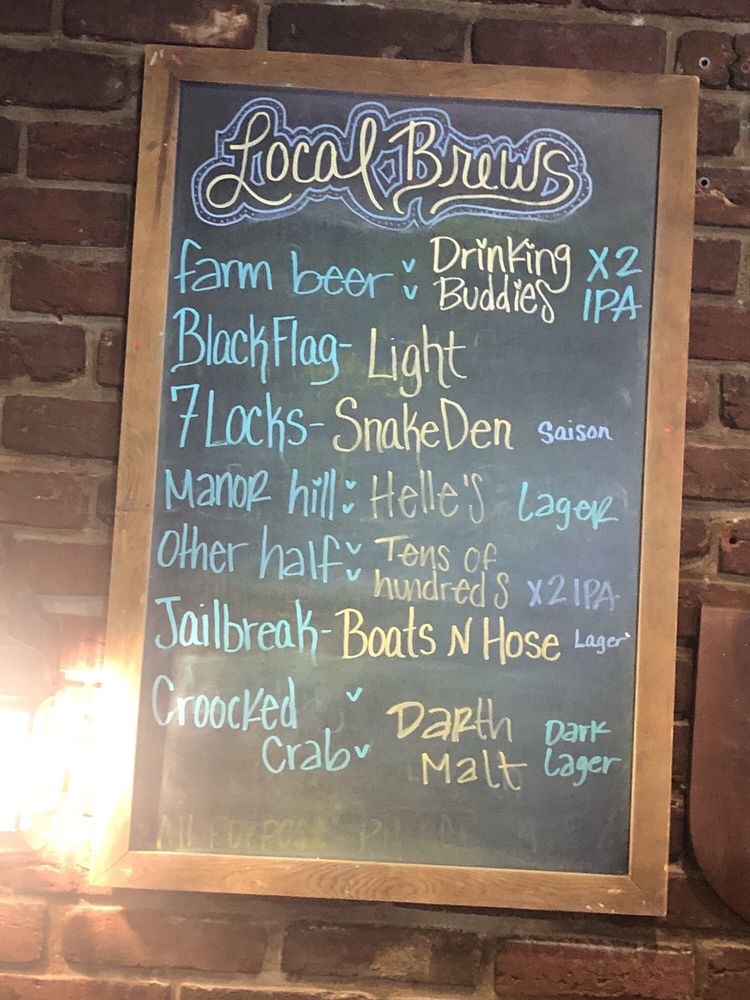 Local Brews
farm beer: Drinking Buddies X2 IPA
BlackFlag- Light
7Locks- SnakeDen Saison
Manor hill: Helle's Lager
Other half: Tens of hundreds X2 IPA
Jailbreak- Boats N Hose Lager
Croocked Crab: Darth Malt Dark Lager
All Purpose